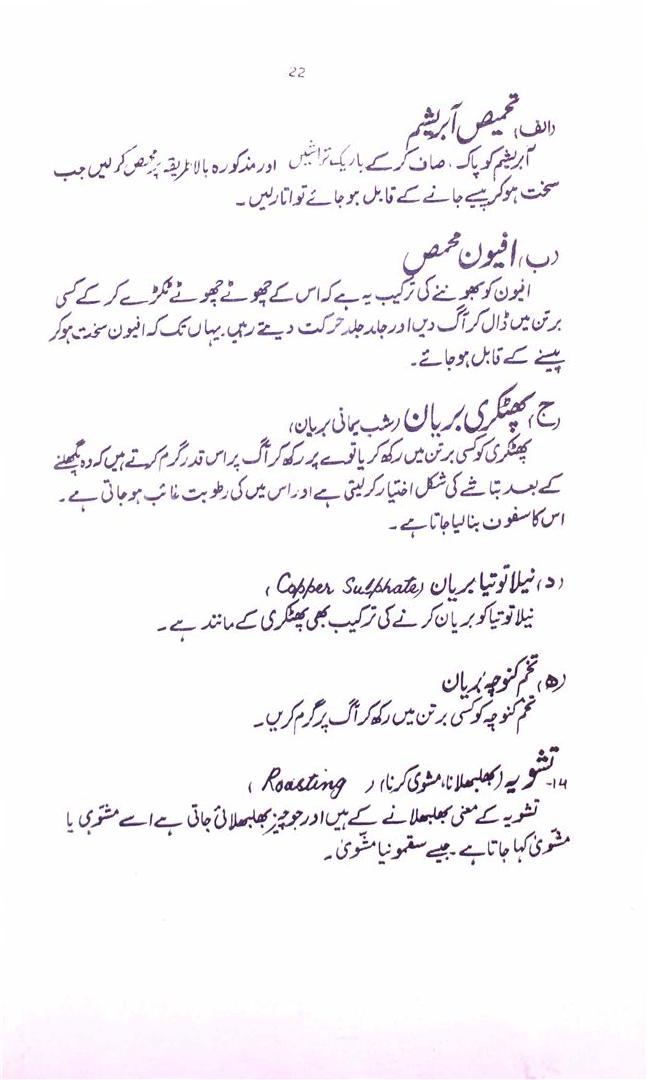 22
(الف) تحمیص آبریشم
آبریشم کو پاک، صاف کر کے باریک تراشیں اور مذکورہ بالا طریقہ پر محمص کر لیں جب
سخت ہو کر پیسے جانے کے قابل ہو جائے تو اتار لیں۔
(ب) افیون محمص
افیون کو بھوننے کی ترکیب یہ ہے کہ اس کے چھوٹے چھوٹے ٹکڑے کر کے کسی
برتن میں ڈال کر آگ دیں اور جلد جلد حرکت دیتے رہیں۔ یہاں تک کہ افیون سخت ہو کر
پیسنے کے قابل ہو جائے۔
(ج) پھٹکری بریان (شب یمانی بریان)
پھٹکری کو کسی برتن میں رکھ کر یا توے پر رکھ کر آگ پر اس قدر گرم کرتے ہیں کہ وہ پگھلنے
کے بعد بتاشے کی شکل اختیار کر لیتی ہے اور اس میں کی رطوبت غائب ہو جاتی ہے۔
اس کا سفوف بنا لیا جاتا ہے۔
(د) نیلا توتیا بریان (Copper Sulphate)
نیلا توتیا کو بریان کرنے کی ترکیب بھی پھٹکری کے مانند ہے۔
(ہ) تخم کنوچہ بُریان
تخم کنوچہ کو کسی برتن میں رکھ کر آگ پر گرم کریں۔
۱۴۔ تشویہ (بھلبھلانا، مشوی کرنا) (Roasting)
تشویہ کے معنی بھلبھلانے کے ہیں اور جو چیز بھلبھلائی جاتی ہے اسے مشوی یا
مشویٰ کہا جاتا ہے۔ جیسے سقمونیا مشویٰ۔